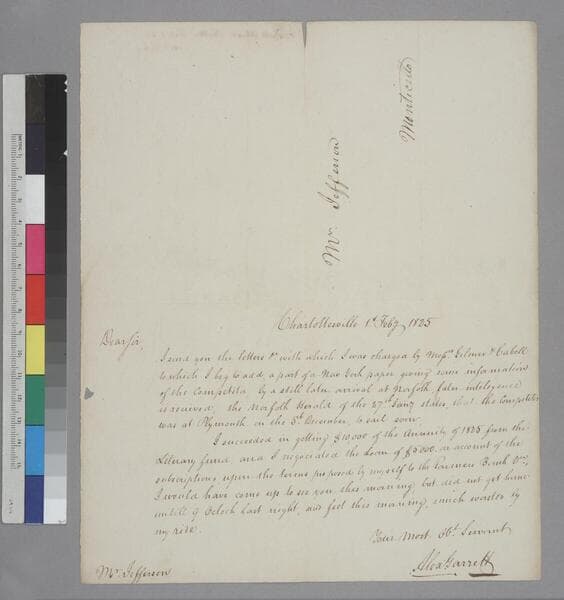 Monticello
Mr. Jefferson
Charlottesville 1st Feby 1825
Dear Sir,
I send you the letters &c with which I was charged by Messrs Gilmer & Cabell
to which I beg to add a part of a New York paper giving some information
of the Competitor, by a still later arrival at Norfolk later inteligence
is received, the Norfolk Herald of the 27th Jany states, that the Competitor
was at Plymouth on the 5th December, to sail soon.
I succeeded in getting $10000 of the Annuity of 1825 from the
Literary fund and I negociated the loan of $5000 on account of the
subscriptions upon the terms proposed by myself to the Farmers Bank
I would have come up to see you this morning but did not get home
untill 9 Oclock last night, and feel this morning, much worsted by
my ride.
Your Most Obt. Servant
Alex Garrett
Mr. Jefferson